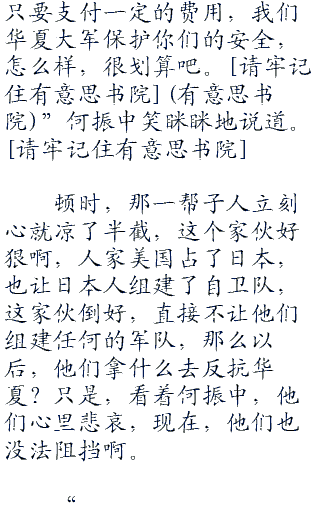 只要支付一定的费用，我们
华夏大军保护你们的安全，
怎么样，很划算吧。[请牢记
住有意思书院] (有意思书
院)”何振中笑眯眯地说道。
[请牢记住有意思书院]
顿时，那一帮子人立刻
心就凉了半截，这个家伙好
狠啊，人家美国占了日本，
也让日本人组建了自卫队，
这家伙倒好，直接不让他们
组建任何的军队，那么以
后，他们拿什么去反抗华
夏？只是，看着何振中，他
们心里悲哀，现在，他们也
没法阻挡啊。
“